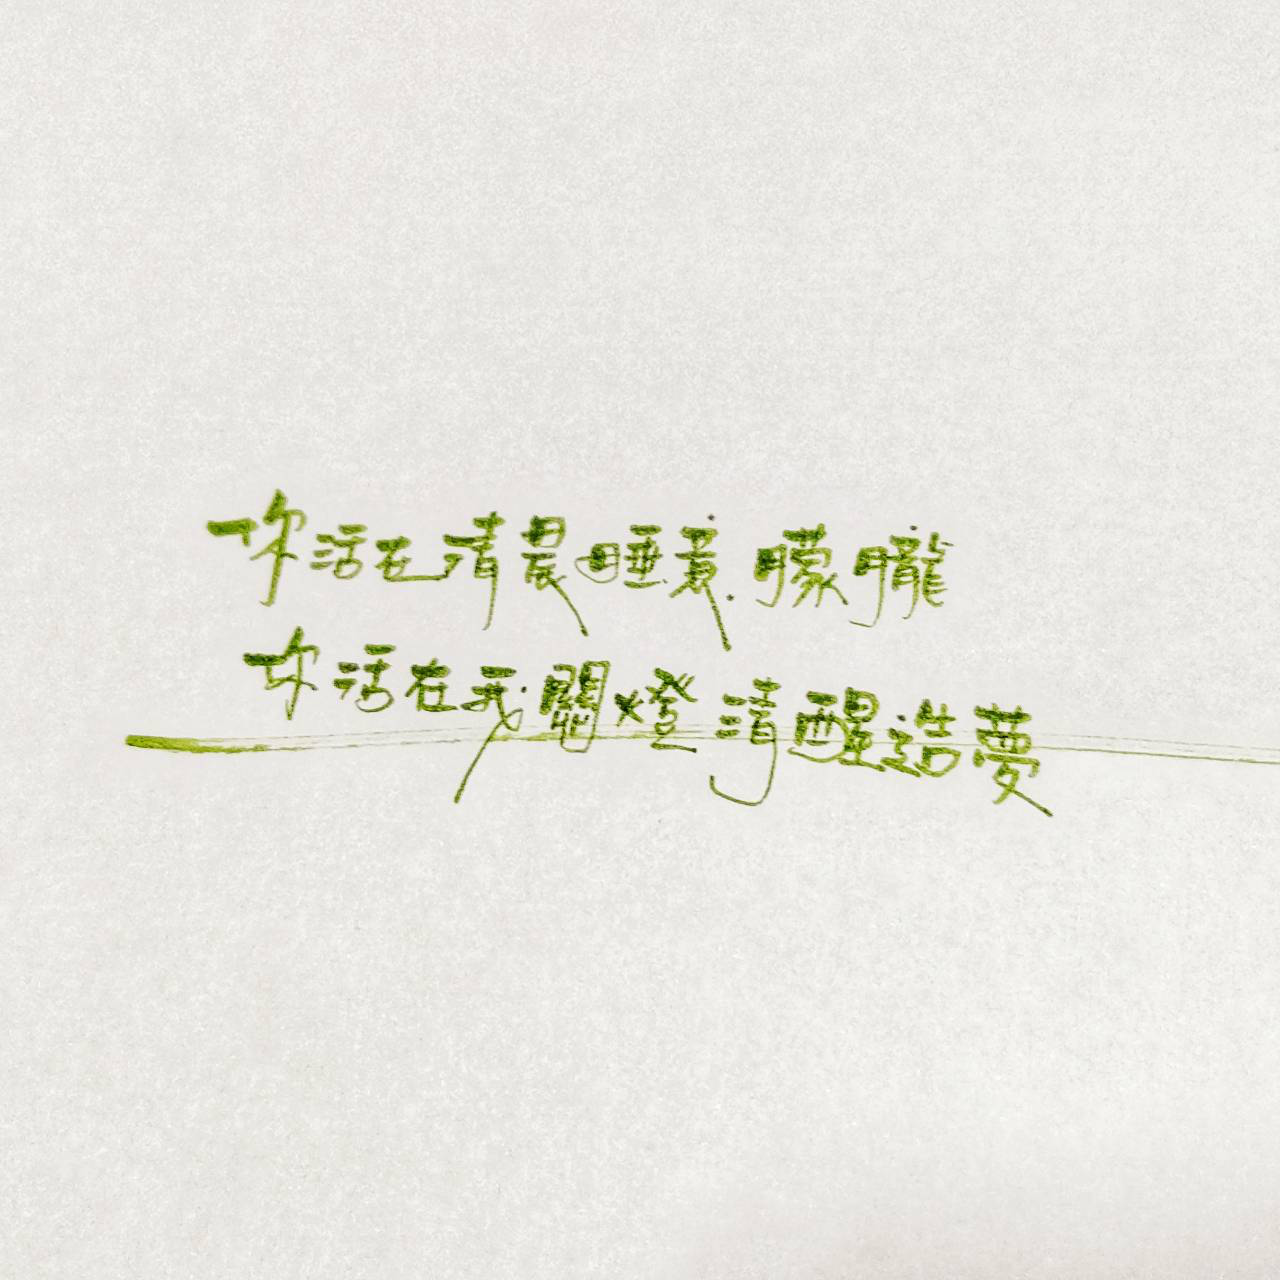 你活在清晨睡意朦朧
你活在我關燈清醒造夢